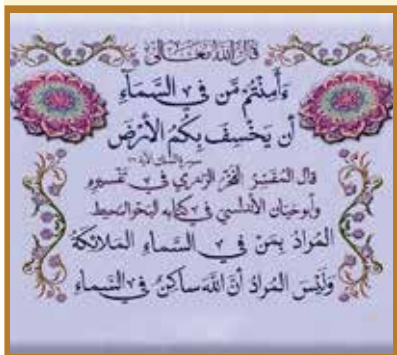 قال الله تعالى
ءَأَمِنتُم مَّن فِي السَّمَآءِ
أَن يَخْسِفَ بِكُمُ الأَرْضَ
قال المفسر الفخر الرازي في تفسيره
وأبو حيان الأندلسي في كتابه البحر المحيط
المُرادُ بِمَنْ فِي السَّماءِ المَلائكةُ
وَلَيْسَ المُرادُ أنَّ اللَّهَ سَاكِنٌ في السَّماءِ